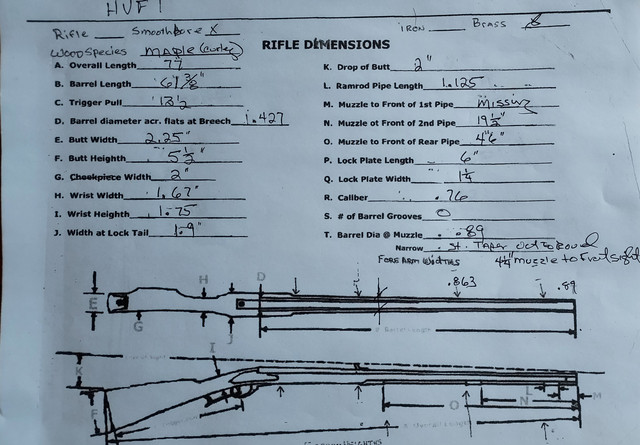 HVF 1
Rifle ___ Smoothbore X IRON ___ Brass X
Wood Species MAPLE (curley)
RIFLE DIMENSIONS
A. Overall Length 77
B. Barrel Length 61 3/8"
C. Trigger Pull 13 1/2
D. Barrel diameter acr. flats at Breech 1.427
E. Butt Width 2.25"
F. Butt Heighth 5 1/2"
G. Cheekpiece Width 2"
H. Wrist Width 1.67"
I. Wrist Heighth 1.75
J. Width at Lock Tail 1.9"
K. Drop of Butt 2"
L. Ramrod Pipe Length 1.125
M. Muzzle to Front of 1st Pipe Missing
N. Muzzle ot Front of 2nd Pipe 19 1/2"
O. Muzzle to Front of Rear Pipe 4"6"
P. Lock Plate Length 6"
Q. Lock Plate Width 1 1/4
R. Caliber .76
S. # of Barrel Grooves 0
T. Barrel Dia @ Muzzle .89
Narrow . St. Taper Oct to Round
FOREARM WIDTHS 4 1/4" muzzle to Front sight
D
H
.863
.89
E
G
J
I
K
L
M
N
O
F